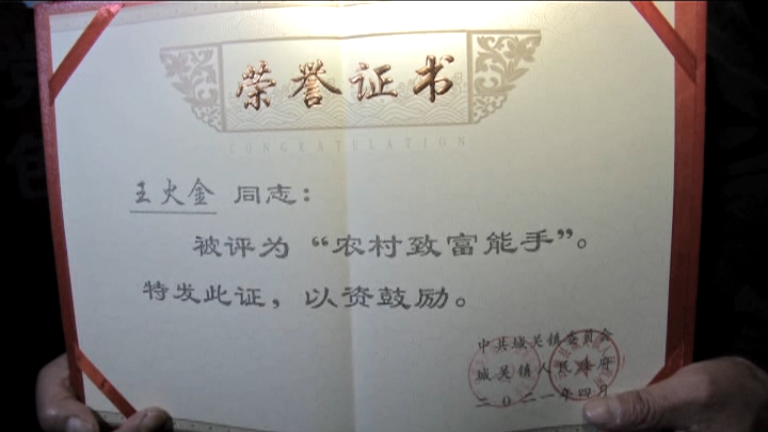 荣誉证书
CONGRATULATION
王火金 同志：
被评为“农村致富能手”。
特发此证，以资鼓励。
中共城关镇委员会
城关镇人民政府
二〇二一年四月